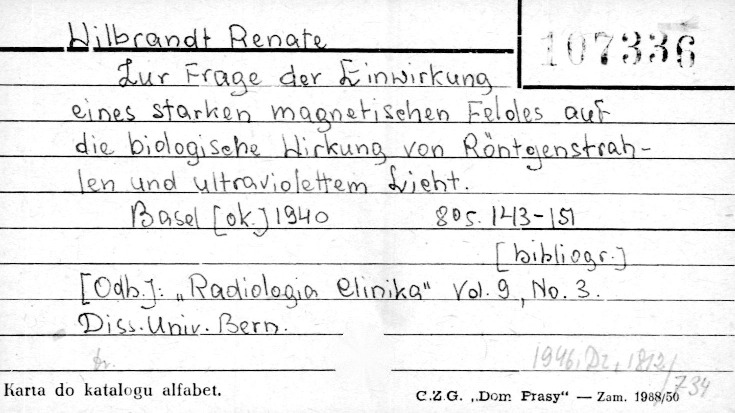 Wilbrandt Renate
107336
Zur Frage der Einwirkung
eines starken magnetischen Feldes auf
die biologische Wirkung von Röntgenstrah-
len und ultraviolettem Licht.
Basel [ok.] 1940 80 s. 143-151
[bibliogr.]
[Odb.]: „Radiologia Clinika" Vol. 9, No. 3.
Diss. Univ. Bern.
fr.
1946, Dz, 1812/734
Karta do katalogu alfabet.
C.Z.G. „Dom Prasy" — Zam. 1988/50